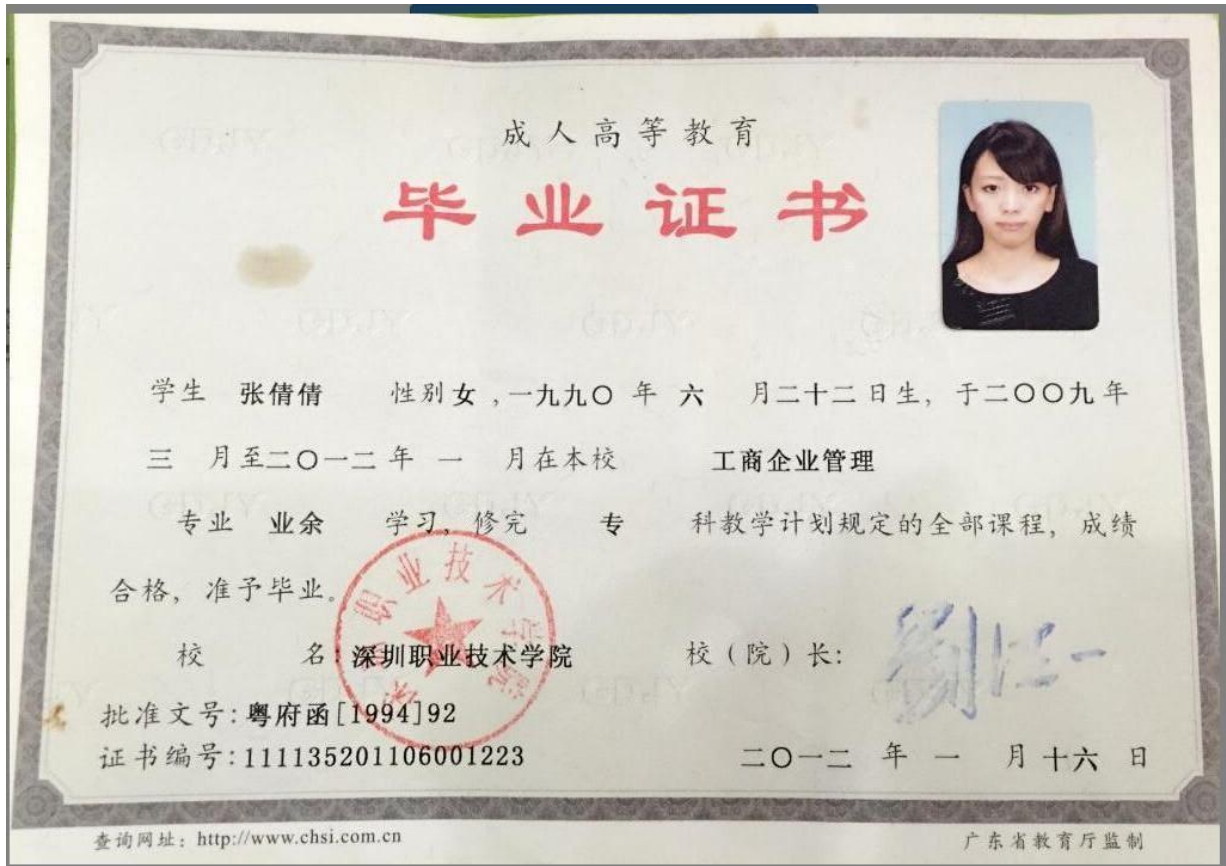 成人高等教育
毕业证书
学生 张倩倩 性别 女 ,一九九〇 年 六 月二十二日生, 于二〇〇九年
三 月至二〇一二年 一 月在本校 工商企业管理
专业 业余 学习, 修完 专 科教学计划规定的全部课程, 成绩
合格, 准予毕业。
职业技术学院
校 名: 深圳职业技术学院 校(院)长:
批准文号: 粤府函[1994]92
证书编号: 111135201106001223 二〇一二 年 一 月 十六 日
查询网址: http://www.chsi.com.cn 广东省教育厅监制